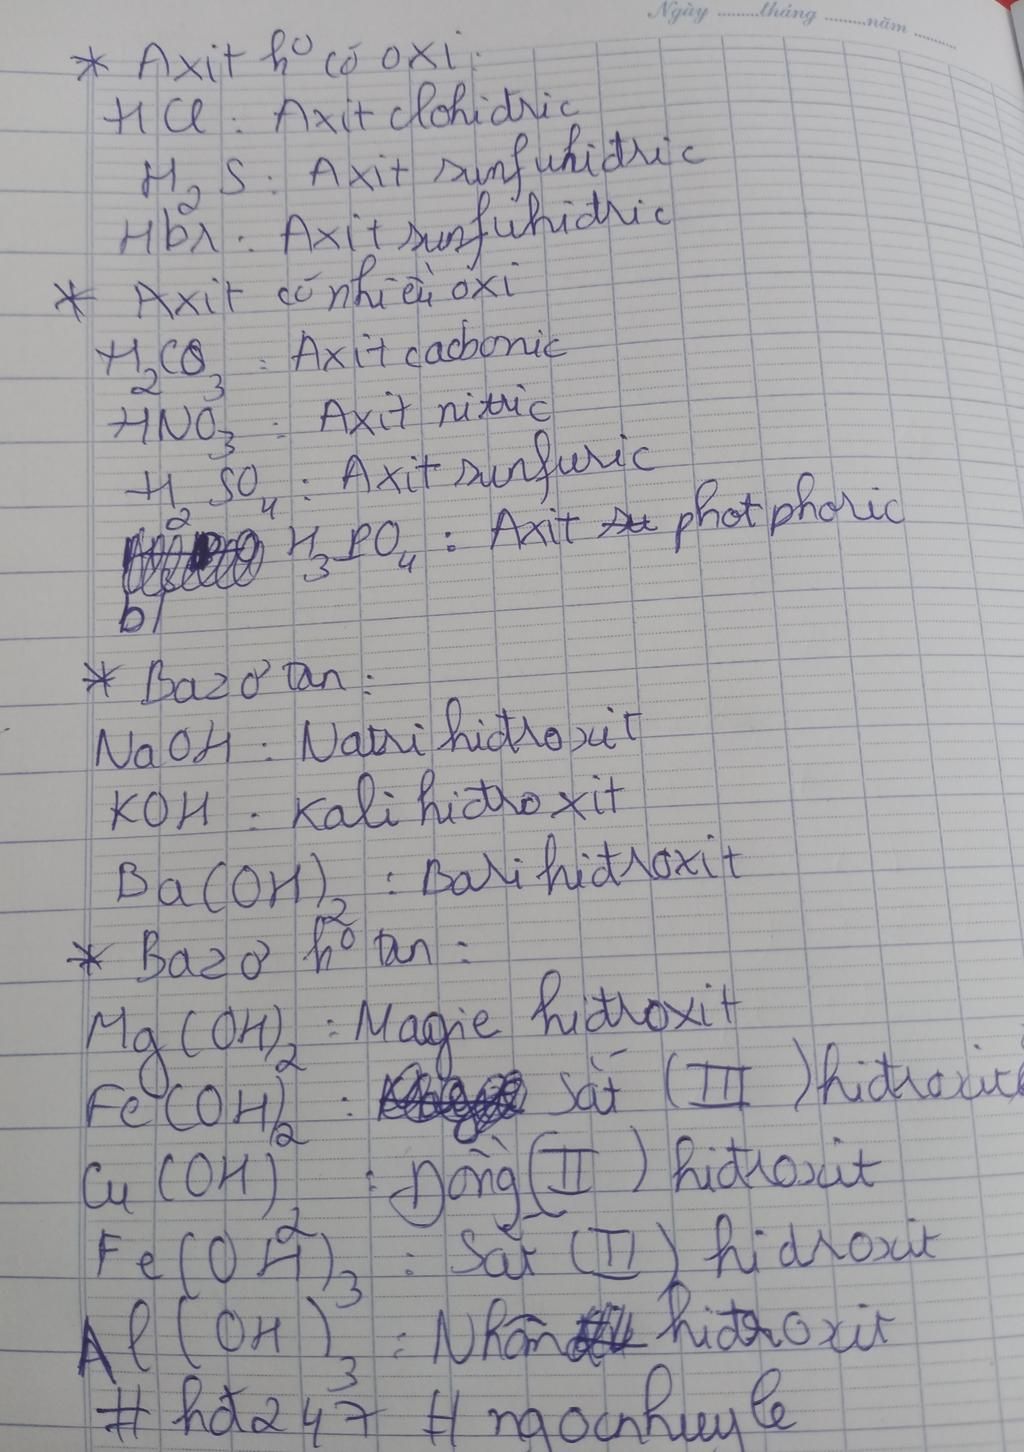 Ngày ......... tháng ......... năm .........
* Axit k° có oxi:
HCl: Axit clohidric
H₂S: Axit sunfuhidric
Hbr: Axit sunfuhidric
* Axit có nhiều oxi
H₂CO₃: Axit cacbonic
HNO₃: Axit nitric
H₂SO₄: Axit sunfuric
H₃PO₄: Axit photphoric
b/
* Bazơ tan:
NaOH: Natri hidroxit
KOH: Kali hidroxit
Ba(OH)₂: Bari hidroxit
* Bazơ k° tan:
Mg(OH)₂: Magie hidroxit
Fe(OH)₂: Sắt (III) hidroxit
Cu(OH)₂: Đồng (II) hidroxit
Fe(OH)₃: Sắt (II) hidroxit
Al(OH)₃: Nhôm hidroxit
# hđ247 # ngocnhuyle